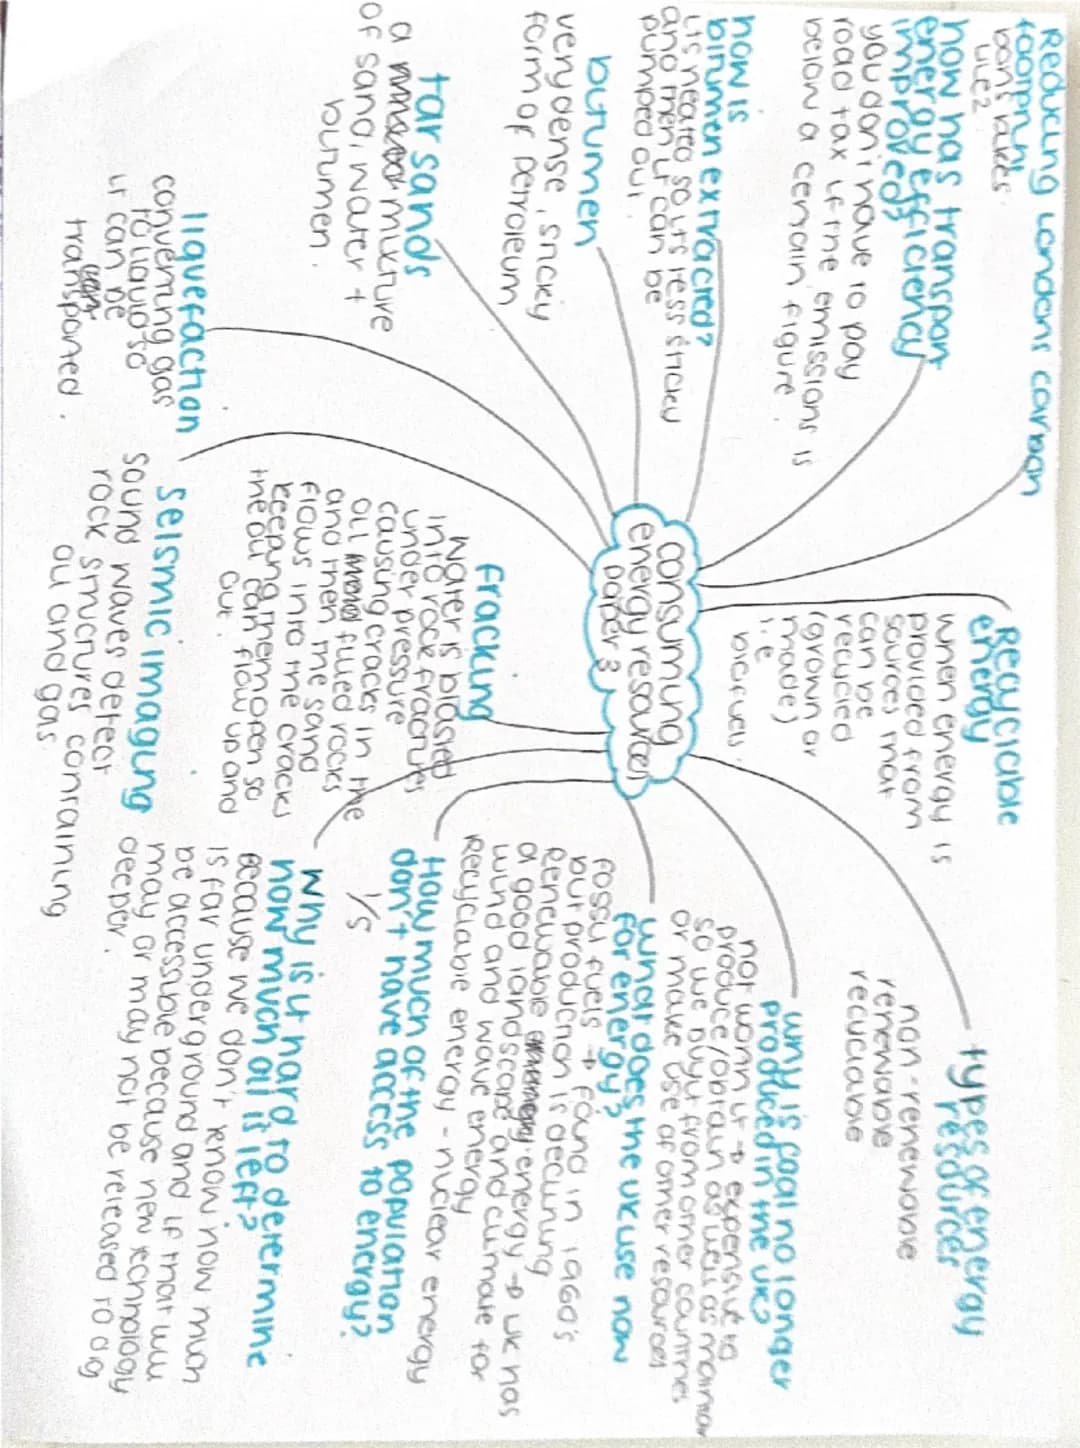 consuming
energy resources
paper 3
Reducing Londons carbon
footprint
boris bikes
LCZ
how has transport
energy efficiency
improved?
you don't have to pay
road tax if the emissions is
below a certain figure
how is
bitumen extracted?
its heated so its less sticky
and then it can be
pumped out.
bitumen
very dense, sticky
form of petroleum
tar sands
a mixture
of sand, water +
bitumen.
liquefaction
converting gas
to liquid so
it can be
transported.
seismic imaging
sound waves detect
rock structures containing
oil and gas
fracking
water is blasted
into rock fractures
under pressure
causing cracks in the
oil filled rocks
and then the sand
flows into the cracks
keeping them open so
the oil can flow up and
out.
why is it hard to determine
how much oil is left?
because we don't know how much
is far underground and if that will
be accessible because new technology
may or may not be released to dig
deeper.
How much of the population
don't have access to energy?
1/5
what does the uk use now
for energy?
fossil fuels → found in 1960's
but production is declining
Renewable energy → uk has
a good landscape and climate for
wind and wave energy
Recyclable energy - nuclear energy
why is coal no longer
produced in the uk?
not worth it → expensive to
produce/obtain
so we buy it from other countries
or make use of other resources
types of energy
resources
non-renewable
renewable
recyclable
Recyclable
energy
when energy is
provided from
sources that
can be
recycled
(grown or
made)
i.e
biofuels.